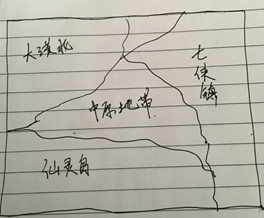 大漠北
七侠镇
中原地带
仙灵岛